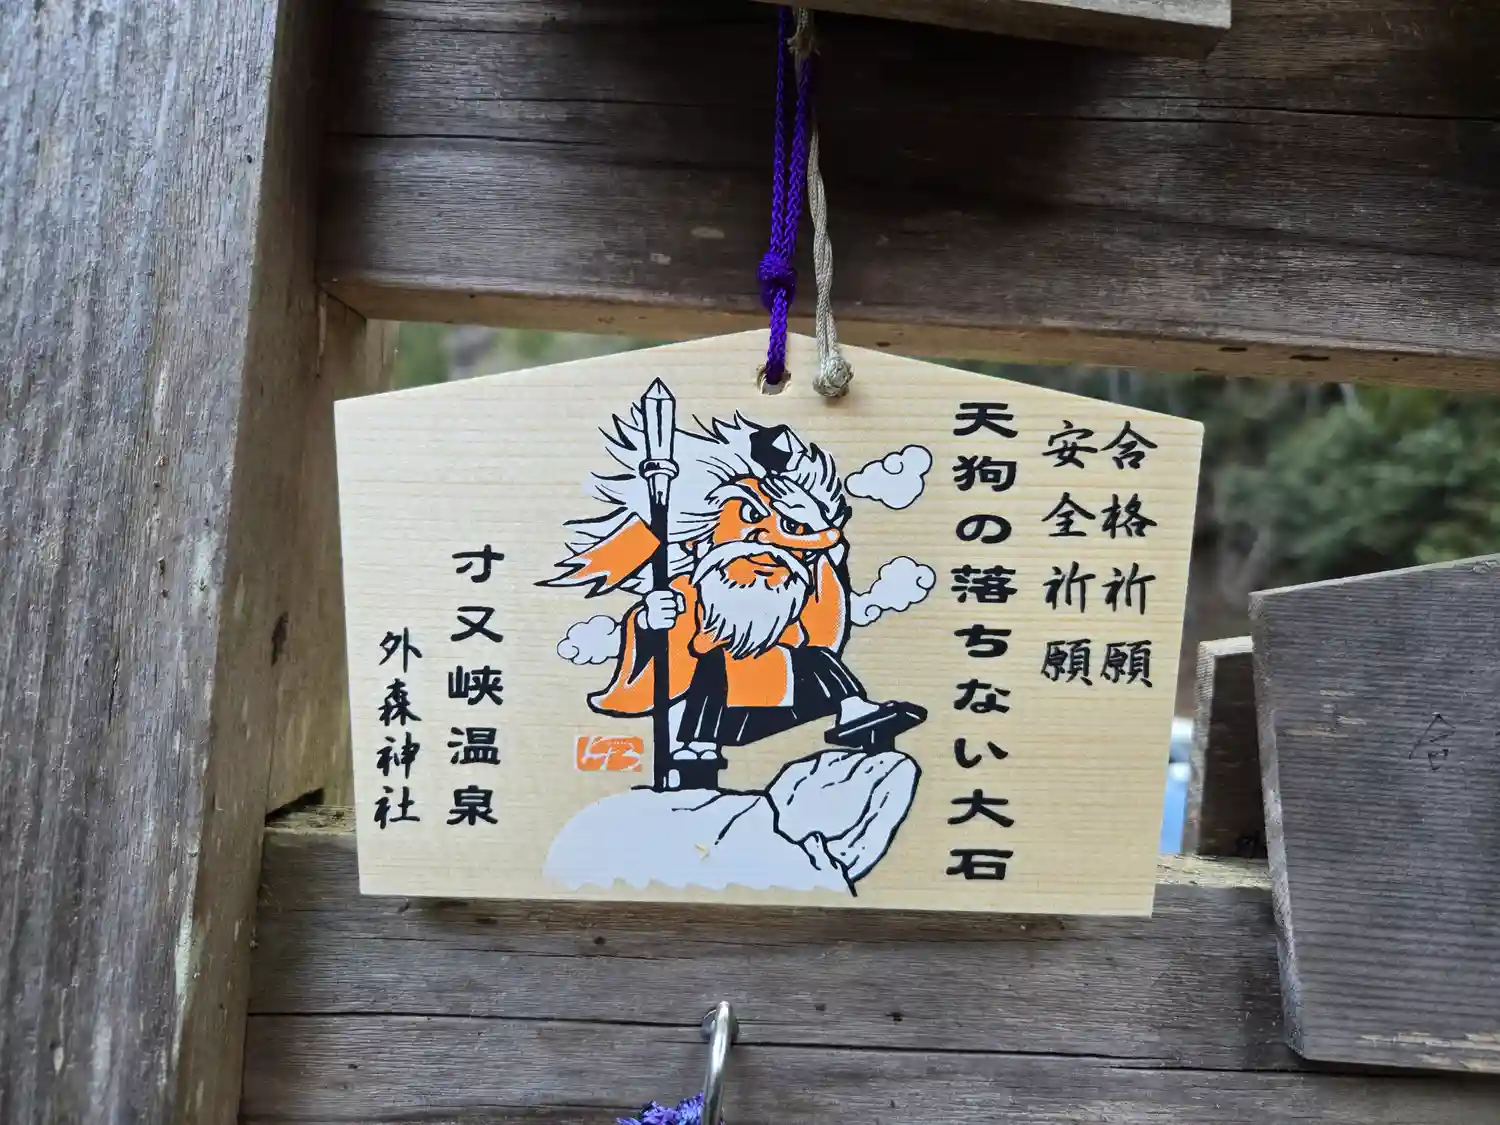 合格祈願
安全祈願
天狗の落ちない大石
才又峡温泉
外森神社